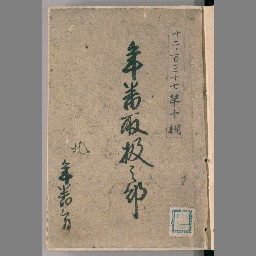 十二ノ百三十七第十棚
年番取扱之部
年番方